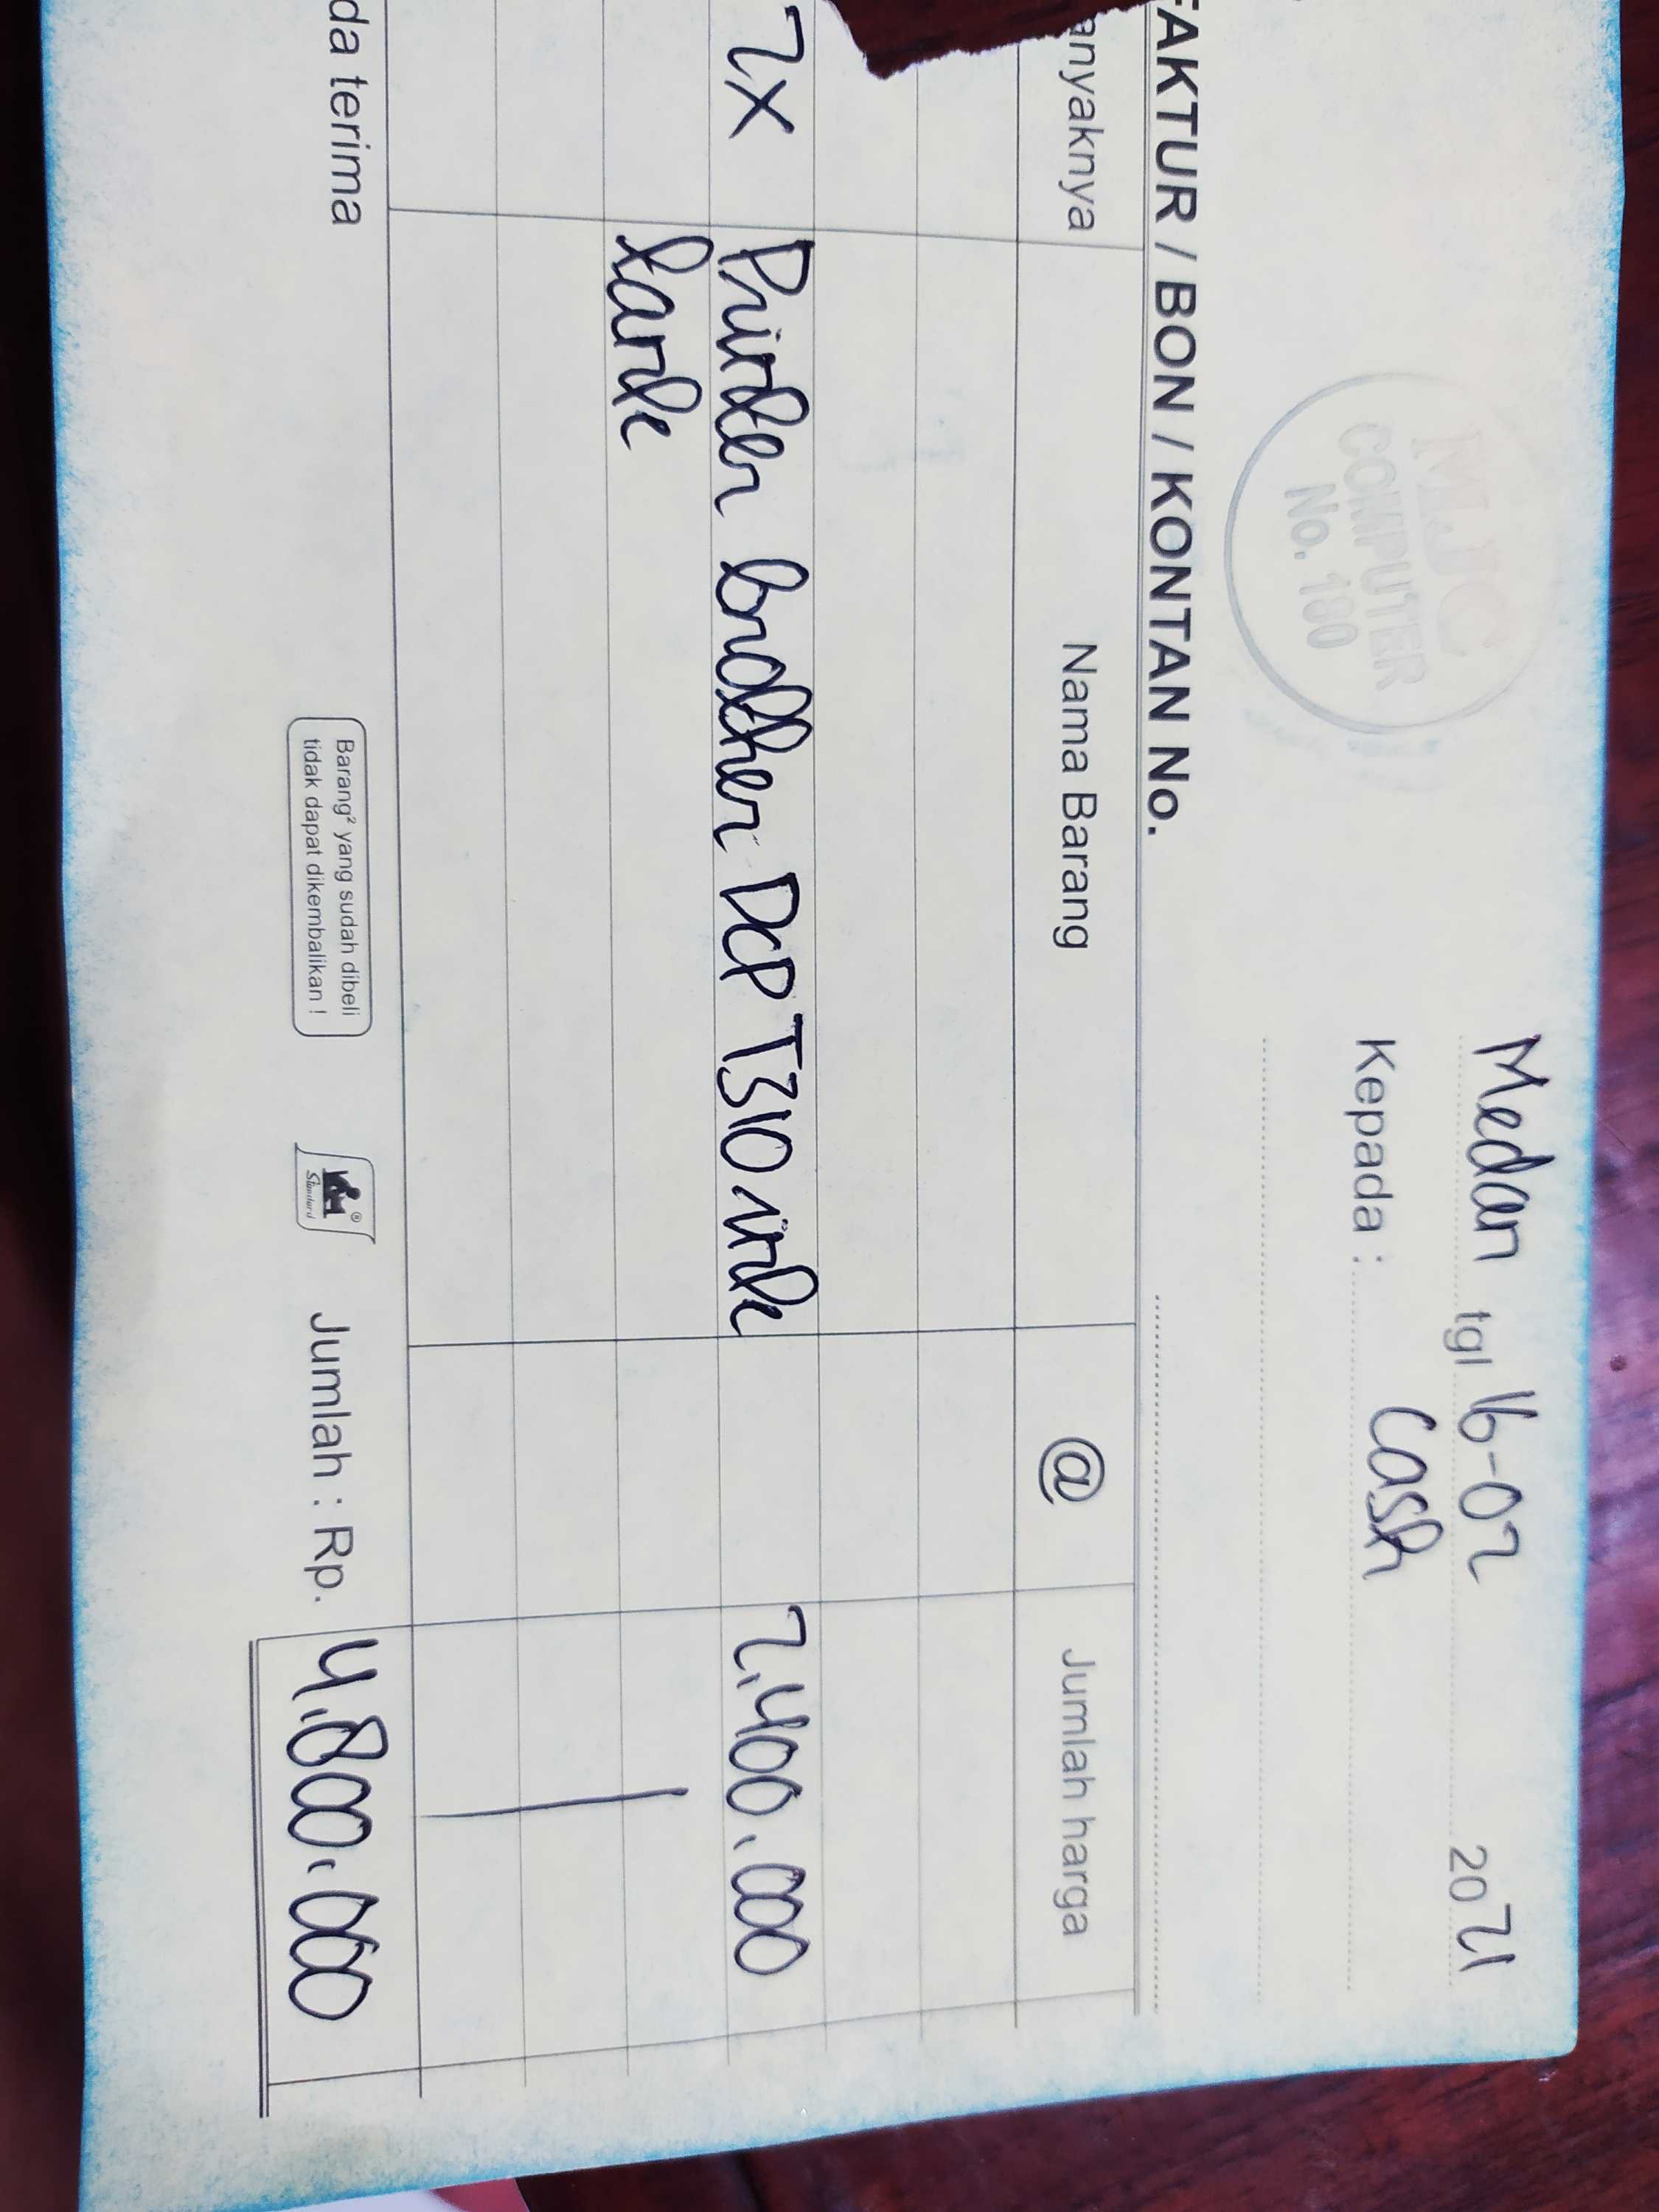 MJC
COMPUTER
No. 180
Medan tgl 16-02 2021
Kepada : Cash
FAKTUR / BON / KONTAN No.
anyaknya Nama Barang @ Jumlah harga
2x Printer brother DCP T310 ink 2.400.000
tank
da terima
Barang² yang sudah dibeli
tidak dapat dikembalikan !
Standard ®
Jumlah : Rp. 4.800.000